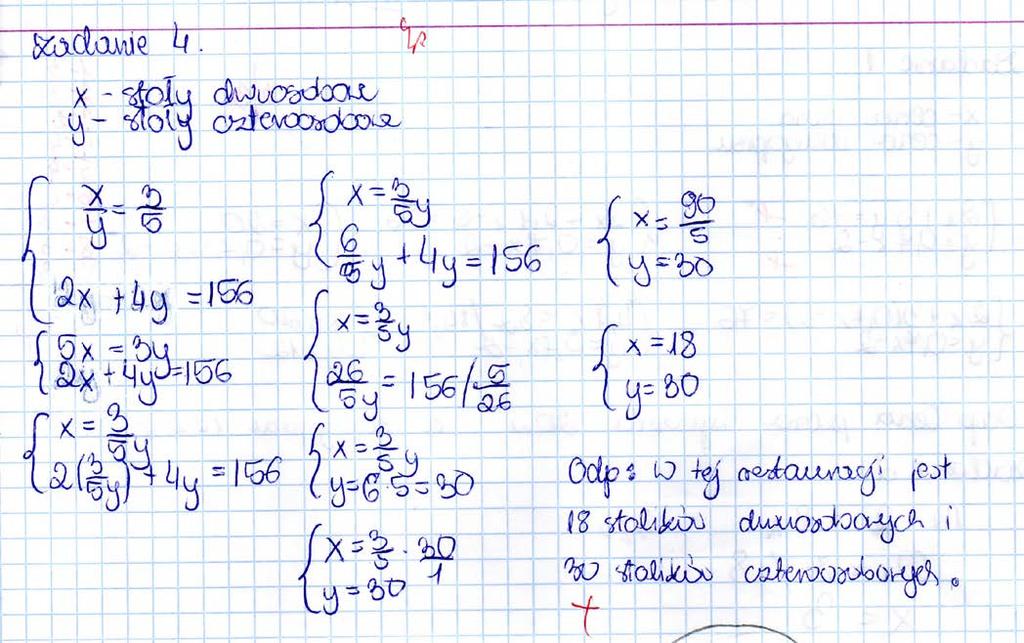 Zadanie 4.
x - stoły dwuosobowe
y - stoły czteroosobowe
x/y = 3/5
2x + 4y = 156
5x = 3y
2x + 4y = 156
x = 3/5 y
2(3/5 y) + 4y = 156
x = 3/5 y
6/5 y + 4y = 156
x = 3/5 y
26/5 y = 156 / 5/26
x = 3/5 y
y = 6 · 5 = 30
x = 3/5 · 30/1
y = 30
x = 90/5
y = 30
x = 18
y = 30
Odp: W tej restauracji jest
18 stolików dwuosobowych i
30 stolików czteroosobowych.